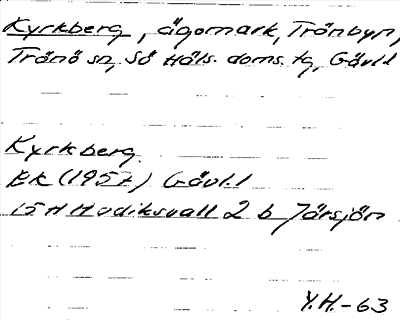 Kyrkberg, ägomark, Trönbyn,
Trönö sn, Sö Häls. doms. tg, Gävl.l
Kyrkberg
EK (1957) Gävl.l
15H Hudiksvall 2 b Järsjön
Y.H.-63